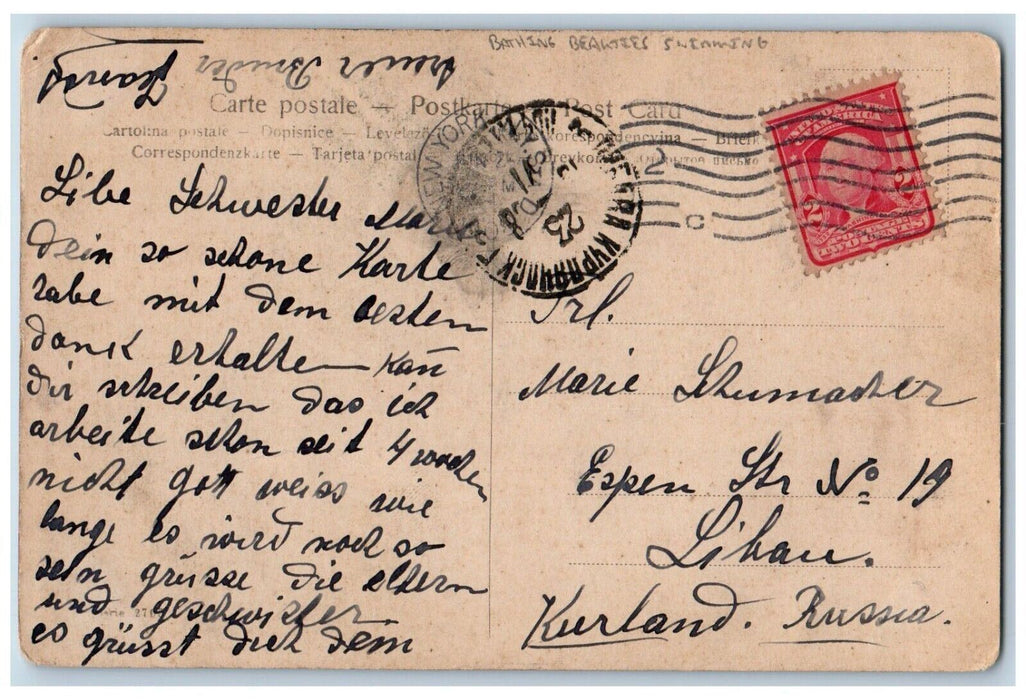 BATHING BEAUTIES SWIMMING
Carte postale — Postkarte — Post Card
Cartolina postale – Dopisnice – Levelező
Correspondenzkarte – Tarjeta postal
NEW YORK
2
C
2 2
TWO CENTS
Libe Schwester Marie
Dein so schöne Karte
habe mit dem besten
danck erhalten kan̅
Dir schreiben das ich
arbeite schon seit 4 wochen
nicht gott weiss wie
lange es wird noch so
sein grüsse die eltern
und geschwister
es grüsst dich dein
treuer Bruder
Frl.
Marie Schumacher
Espen Str No 19
Libau.
Kurland. Russia.